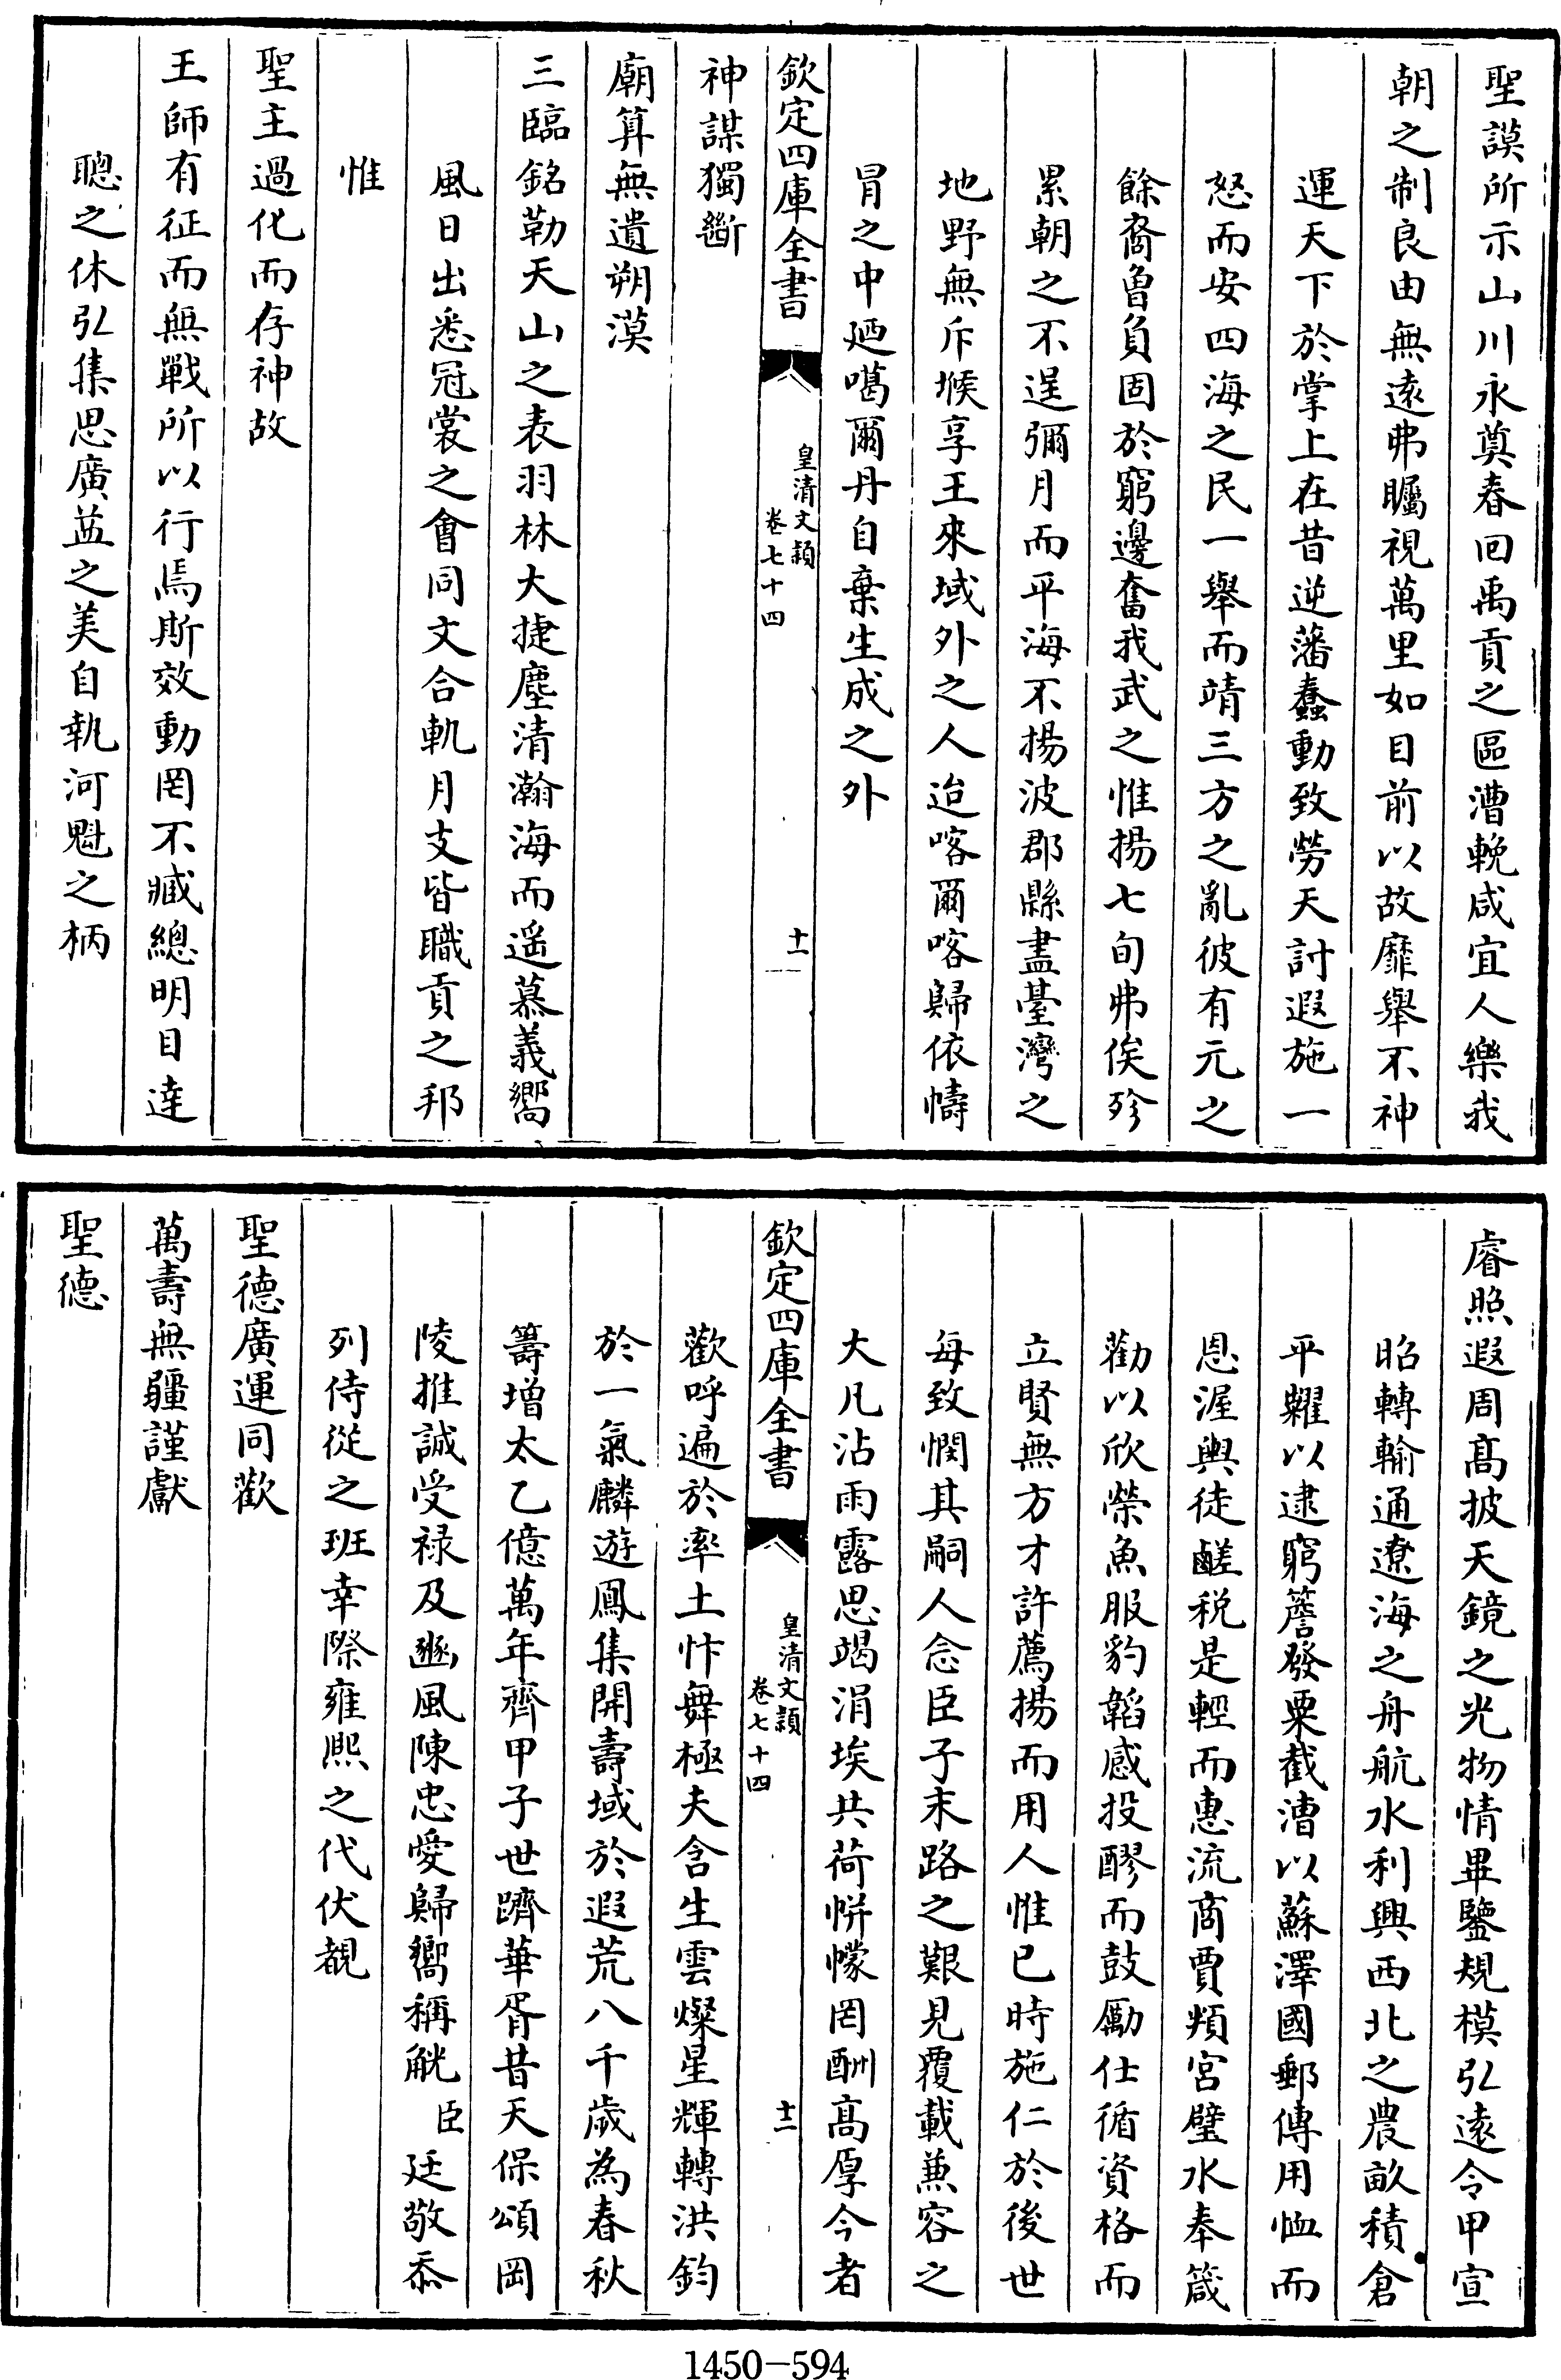 聖謨所示山川永奠春回禹貢之區漕輓咸宜人樂我
朝之制良由無遠弗矚視萬里如目前以故靡舉不神
運天下於掌上在昔逆藩蠢動致勞天討遐施一
怒而安四海之民一舉而靖三方之亂彼有元之
餘裔曾負固於窮邊奮我武之惟揚七旬弗俟殄
累朝之不逞彌月而平海不揚波郡縣盡臺灣之
地野無斥堠享王來域外之人迨喀爾喀歸依幬
冐之中廼噶爾丹自棄生成之外
欽定四庫全書
皇清文穎
卷七十四
十一
神謀獨斷
廟算無遺朔漠
三臨銘勒天山之表羽林大捷塵清瀚海而遥慕義嚮
風日出悉冠裳之會同文合軌月支皆職貢之邦
惟
聖主過化而存神故
王師有征而無戰所以行焉斯效動罔不臧總明目達
聰之休弘集思廣益之美自執河魁之柄
睿照遐周髙披天鏡之光物情畢鑒規模弘遠令甲宣
昭轉輸通遼海之舟航水利興西北之農畝積倉
平糶以逮窮簷發粟截漕以蘇澤國郵傳用恤而
恩渥輿徒鹺税是輕而惠流商賈頖宮璧水奉箴
勸以欣榮魚服豹韜感投醪而鼓勵仕循資格而
立賢無方才許薦揚而用人惟已時施仁於後世
每致憫其嗣人念臣子末路之艱見覆載兼容之
大凡沾雨露思竭涓埃共荷帡幪罔酬髙厚今者
欽定四庫全書
皇清文穎
卷七十四
十二
歡呼遍於率土忭舞極夫含生雲燦星輝轉洪鈞
於一氣麟遊鳳集開壽域於遐荒八千歲為春秋
籌增太乙億萬年齊甲子世躋華胥昔天保頌岡
陵推誠受禄及豳風陳忠愛歸嚮稱觥臣廷敬忝
列侍從之班幸際雍熙之代伏覩
聖德廣運同歡
萬壽無疆謹獻
聖德
1450-594